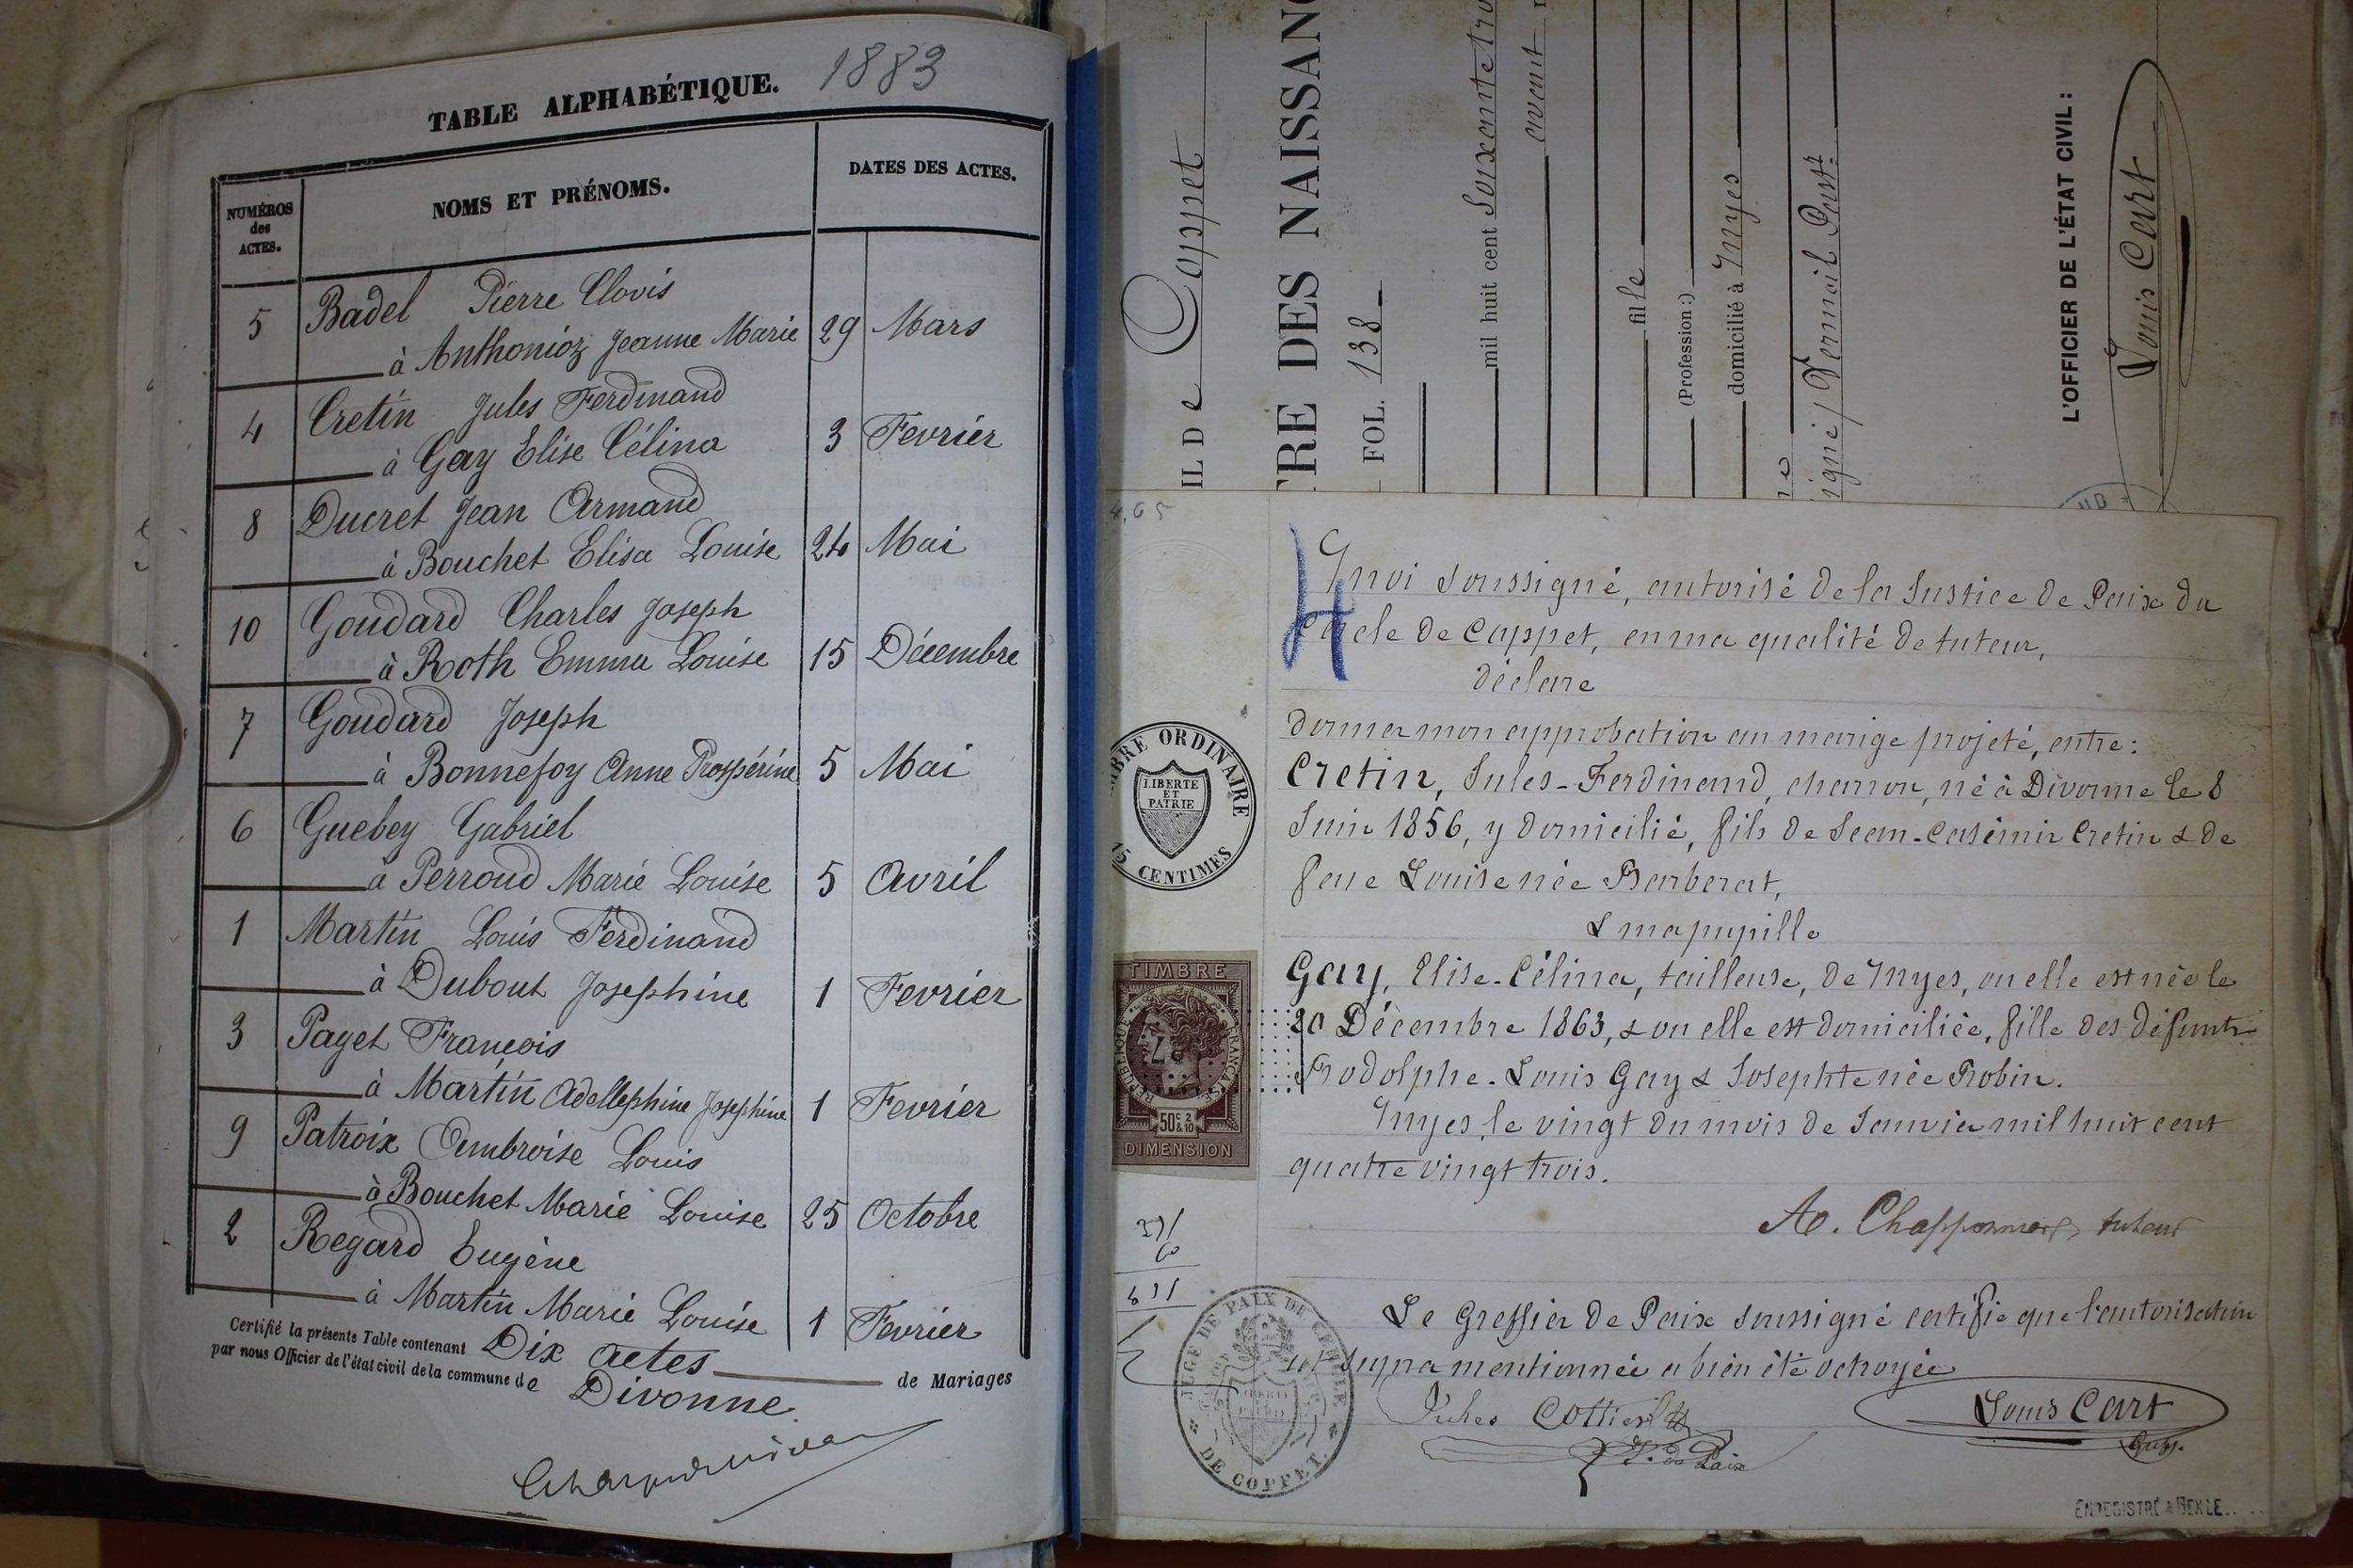 TABLE ALPHABÉTIQUE. 1883
NUMÉROS des ACTES.
NOMS ET PRÉNOMS.
DATES DES ACTES.
5 Badel Pierre Clovis
à Anthonioz Jeanne Marie 29 Mars
4 Cretin Jules Ferdinand
à Gay Elise Célina 3 Fevrier
8 Ducret Jean Armand
à Bouchet Elisa Louise 24 Mai
10 Goudard Charles Joseph
à Roth Emma Louise 15 Décembre
7 Goudard Joseph
à Bonnefoy Anne Prospérine 5 Mai
6 Guebey Gabriel
à Perroud Marie Louise 5 Avril
1 Martin Louis Ferdinand
à Dubout Josephine 1 Fevrier
3 Paget Francois
à Martin Adellephine Josephine 1 Fevrier
9 Patroix Ambroise Louis
à Bouchet Marie Louise 25 Octobre
2 Regard Eugène
à Martin Marie Louise 1 Fevrier
Certifié la présente Table contenant Dix actes de Mariages
par nous Officier de l'état civil de la commune de Divonne
IL De Coppet
TRE DES NAISSANC
FOL. 138
mil huit cent soixante tro
avait
file
(Profession:)
domicilié à Myes
igné / Vermeil Past.
L'OFFICIER DE L'ÉTAT CIVIL:
Louis Cart
4,65
4
moi soussigné, autorisé de la Justice de Paix du
Cercle de Coppet, en ma qualité de tuteur,
déclare
donner mon approbation au marige projeté, entre:
Cretin, Jules-Ferdinand, charron, né à Divonne le 8
Juin 1856, y domicilié, fils de Jean-Casimir Cretin & de
feue Louise née Barberat,
& ma pupille
Gay, Elise-Célina, tailleuse, de Myes, ou elle est née le
20 Décembre 1863, & ou elle est domiciliée, fille des défunts
Rodolphe-Louis Gay & Josephte née Robin.
Myes, le vingt du mois de Janvier mil huit cent
quatre vingt trois.
tuteur
Le Greffier de Paix soussigné certifie que l'autorisation
ut supra mentionnée a bien été octroyée
Jules Cottier
J. de Paix
Louis Cart
Greff.
TIMBRE ORDINAIRE
LIBERTE
ET
PATRIE
15 CENTIMES
TIMBRE
REPUBLIQUE FRANÇAISE
50c 2 & 10
DIMENSION
JUGE DE PAIX DU CERCLE
DE COPPET
ENREGISTRÉ A GEX LE